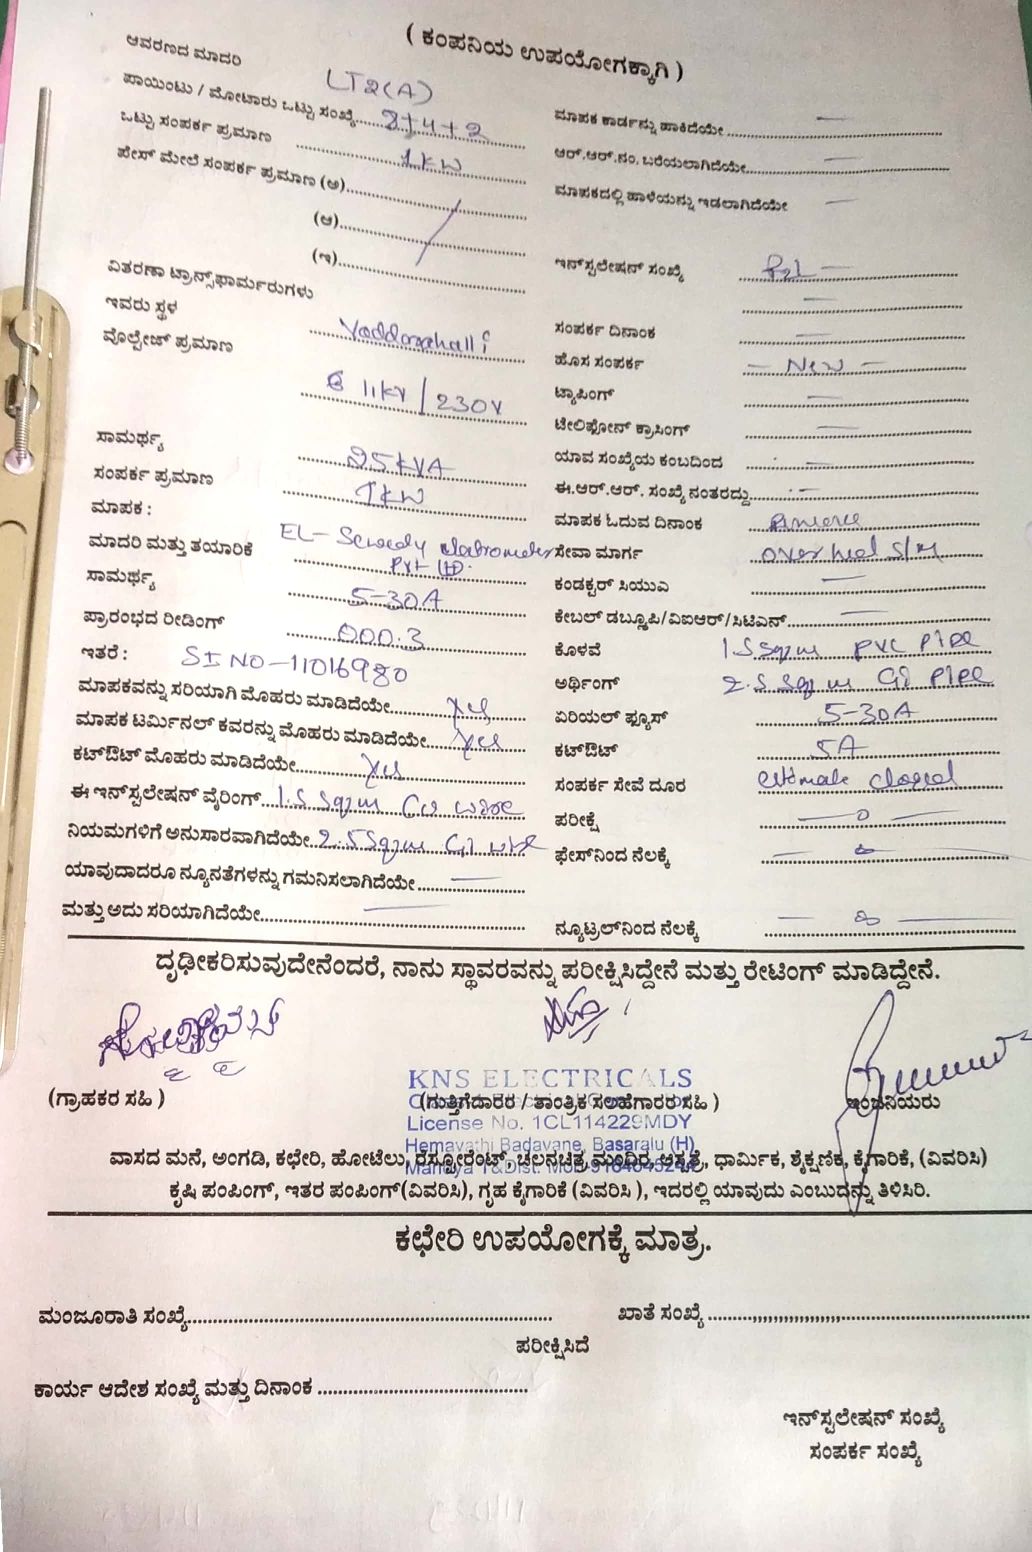 ( ಕಂಪನಿಯ ಉಪಯೋಗಕ್ಕಾಗಿ )
ಆವರಣದ ಮಾದರಿ LT2(A)
ಪಾಯಿಂಟು / ಮೋಟಾರು ಒಟ್ಟು ಸಂಖ್ಯೆ 8+4+2
ಒಟ್ಟು ಸಂಪರ್ಕ ಪ್ರಮಾಣ 1KW
ಪೇಸ್ ಮೇಲೆ ಸಂಪರ್ಕ ಪ್ರಮಾಣ (ಅ)
(ಆ)
(ಇ)
ವಿತರಣಾ ಟ್ರಾನ್ಸ್‌ಫಾರ್ಮರುಗಳು
ಇವರು ಸ್ಥಳ Yaddarahalli
ವೋಲ್ಟೇಜ್ ಪ್ರಮಾಣ 11KV / 230V
ಸಾಮರ್ಥ್ಯ 25KVA
ಸಂಪರ್ಕ ಪ್ರಮಾಣ 1KW
ಮಾಪಕ :
ಮಾದರಿ ಮತ್ತು ತಯಾರಿಕೆ EL-Sewedy eletrometer
Pvt Ltd.
ಸಾಮರ್ಥ್ಯ 5-30A
ಪ್ರಾರಂಭದ ರೀಡಿಂಗ್ 000.3
ಇತರೆ : SI NO-11016980
ಮಾಪಕವನ್ನು ಸರಿಯಾಗಿ ಮೊಹರು ಮಾಡಿದೆಯೇ Yes
ಮಾಪಕ ಟರ್ಮಿನಲ್ ಕವರನ್ನು ಮೊಹರು ಮಾಡಿದೆಯೇ Yes
ಕಟ್‌ಔಟ್ ಮೊಹರು ಮಾಡಿದೆಯೇ Yes
ಈ ಇನ್‌ಸ್ಟಲೇಷನ್ ವೈರಿಂಗ್ 1.5 Sqmm Cu wire
ನಿಯಮಗಳಿಗೆ ಅನುಸಾರವಾಗಿದೆಯೇ 2.5 Sqmm GI wire
ಯಾವುದಾದರೂ ನ್ಯೂನತೆಗಳನ್ನು ಗಮನಿಸಲಾಗಿದೆಯೇ
ಮತ್ತು ಅದು ಸರಿಯಾಗಿದೆಯೇ
ಮಾಪಕ ಕಾರ್ಡನ್ನು ಹಾಕಿದೆಯೇ
ಆರ್.ಆರ್.ನಂ. ಬರೆಯಲಾಗಿದೆಯೇ
ಮಾಪಕದಲ್ಲಿ ಹಾಳೆಯನ್ನು ಇಡಲಾಗಿದೆಯೇ
ಇನ್‌ಸ್ಟಲೇಷನ್ ಸಂಖ್ಯೆ
ಸಂಪರ್ಕ ದಿನಾಂಕ
ಹೊಸ ಸಂಪರ್ಕ - New -
ಟ್ಯಾಪಿಂಗ್
ಟೇಲಿಫೋನ್ ಕ್ರಾಸಿಂಗ್
ಯಾವ ಸಂಖ್ಯೆಯ ಕಂಬದಿಂದ
ಈ.ಆರ್.ಆರ್. ಸಂಖ್ಯೆ ನಂತರದ್ದು
ಮಾಪಕ ಓದುವ ದಿನಾಂಕ
ಸೇವಾ ಮಾರ್ಗ over head S/M
ಕಂಡಕ್ಟರ್ ಸಿಯುಎ
ಕೇಬಲ್ ಡಬ್ಲೂಪಿ/ವಿಐಆರ್/ಸಿಟಿಎನ್
ಕೊಳವೆ 1.5 Sqmm PVC Pipe
ಅರ್ಥಿಂಗ್ 2.5 Sqmm GI Pipe
ಏರಿಯಲ್ ಫ್ಯೂಸ್ 5-30A
ಕಟ್‌ಔಟ್ 5A
ಸಂಪರ್ಕ ಸೇವೆ ದೂರ estimate closed
ಪರೀಕ್ಷೆ
ಫೇಸ್‌ನಿಂದ ನೆಲಕ್ಕೆ
ನ್ಯೂಟ್ರಲ್‌ನಿಂದ ನೆಲಕ್ಕೆ
ದೃಢೀಕರಿಸುವುದೇನೆಂದರೆ, ನಾನು ಸ್ಥಾವರವನ್ನು ಪರೀಕ್ಷಿಸಿದ್ದೇನೆ ಮತ್ತು ರೇಟಿಂಗ್ ಮಾಡಿದ್ದೇನೆ.
KNS ELECTRICALS
(ಗ್ರಾಹಕರ ಸಹಿ )
(ಗುತ್ತಿಗೆದಾರರ / ತಾಂತ್ರಿಕ ಸಲಹೆಗಾರರ ಸಹಿ )
ಇಂಜಿನಿಯರು
License No. 1CL114229MDY
Hemavathi Badavane, Basaralu (H)
ವಾಸದ ಮನೆ, ಅಂಗಡಿ, ಕಛೇರಿ, ಹೋಟೆಲು, ರೆಸ್ಟೋರೆಂಟ್, ಚಲನಚಿತ್ರ ಮಂದಿರ, ಆಸ್ಪತ್ರೆ, ಧಾರ್ಮಿಕ, ಶೈಕ್ಷಣಿಕ, ಕೈಗಾರಿಕೆ, (ವಿವರಿಸಿ)
ಕೃಷಿ ಪಂಪಿಂಗ್, ಇತರ ಪಂಪಿಂಗ್(ವಿವರಿಸಿ), ಗೃಹ ಕೈಗಾರಿಕೆ (ವಿವರಿಸಿ ), ಇದರಲ್ಲಿ ಯಾವುದು ಎಂಬುದನ್ನು ತಿಳಿಸಿರಿ.
ಕಛೇರಿ ಉಪಯೋಗಕ್ಕೆ ಮಾತ್ರ.
ಮಂಜೂರಾತಿ ಸಂಖ್ಯೆ
ಖಾತೆ ಸಂಖ್ಯೆ
ಪರೀಕ್ಷಿಸಿದೆ
ಕಾರ್ಯ ಆದೇಶ ಸಂಖ್ಯೆ ಮತ್ತು ದಿನಾಂಕ
ಇನ್‌ಸ್ಟಲೇಷನ್ ಸಂಖ್ಯೆ
ಸಂಪರ್ಕ ಸಂಖ್ಯೆ